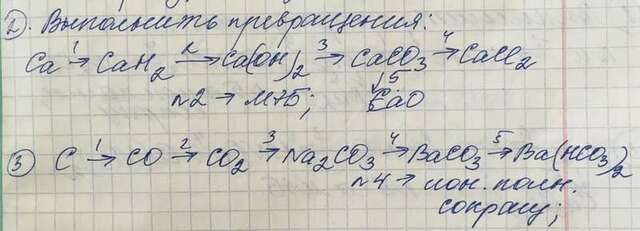 2. Выполнить превращения:
Ca 1→ CaH2 2→ Ca(OH)2 3→ CaCO3 4→ CaCl2
↓5
n2 → МЭБ; CaO
3 C 1→ CO 2→ CO2 3→ Na2CO3 4→ BaCO3 5→ Ba(HCO3)2
n4 → ион. полн.
сокращ;